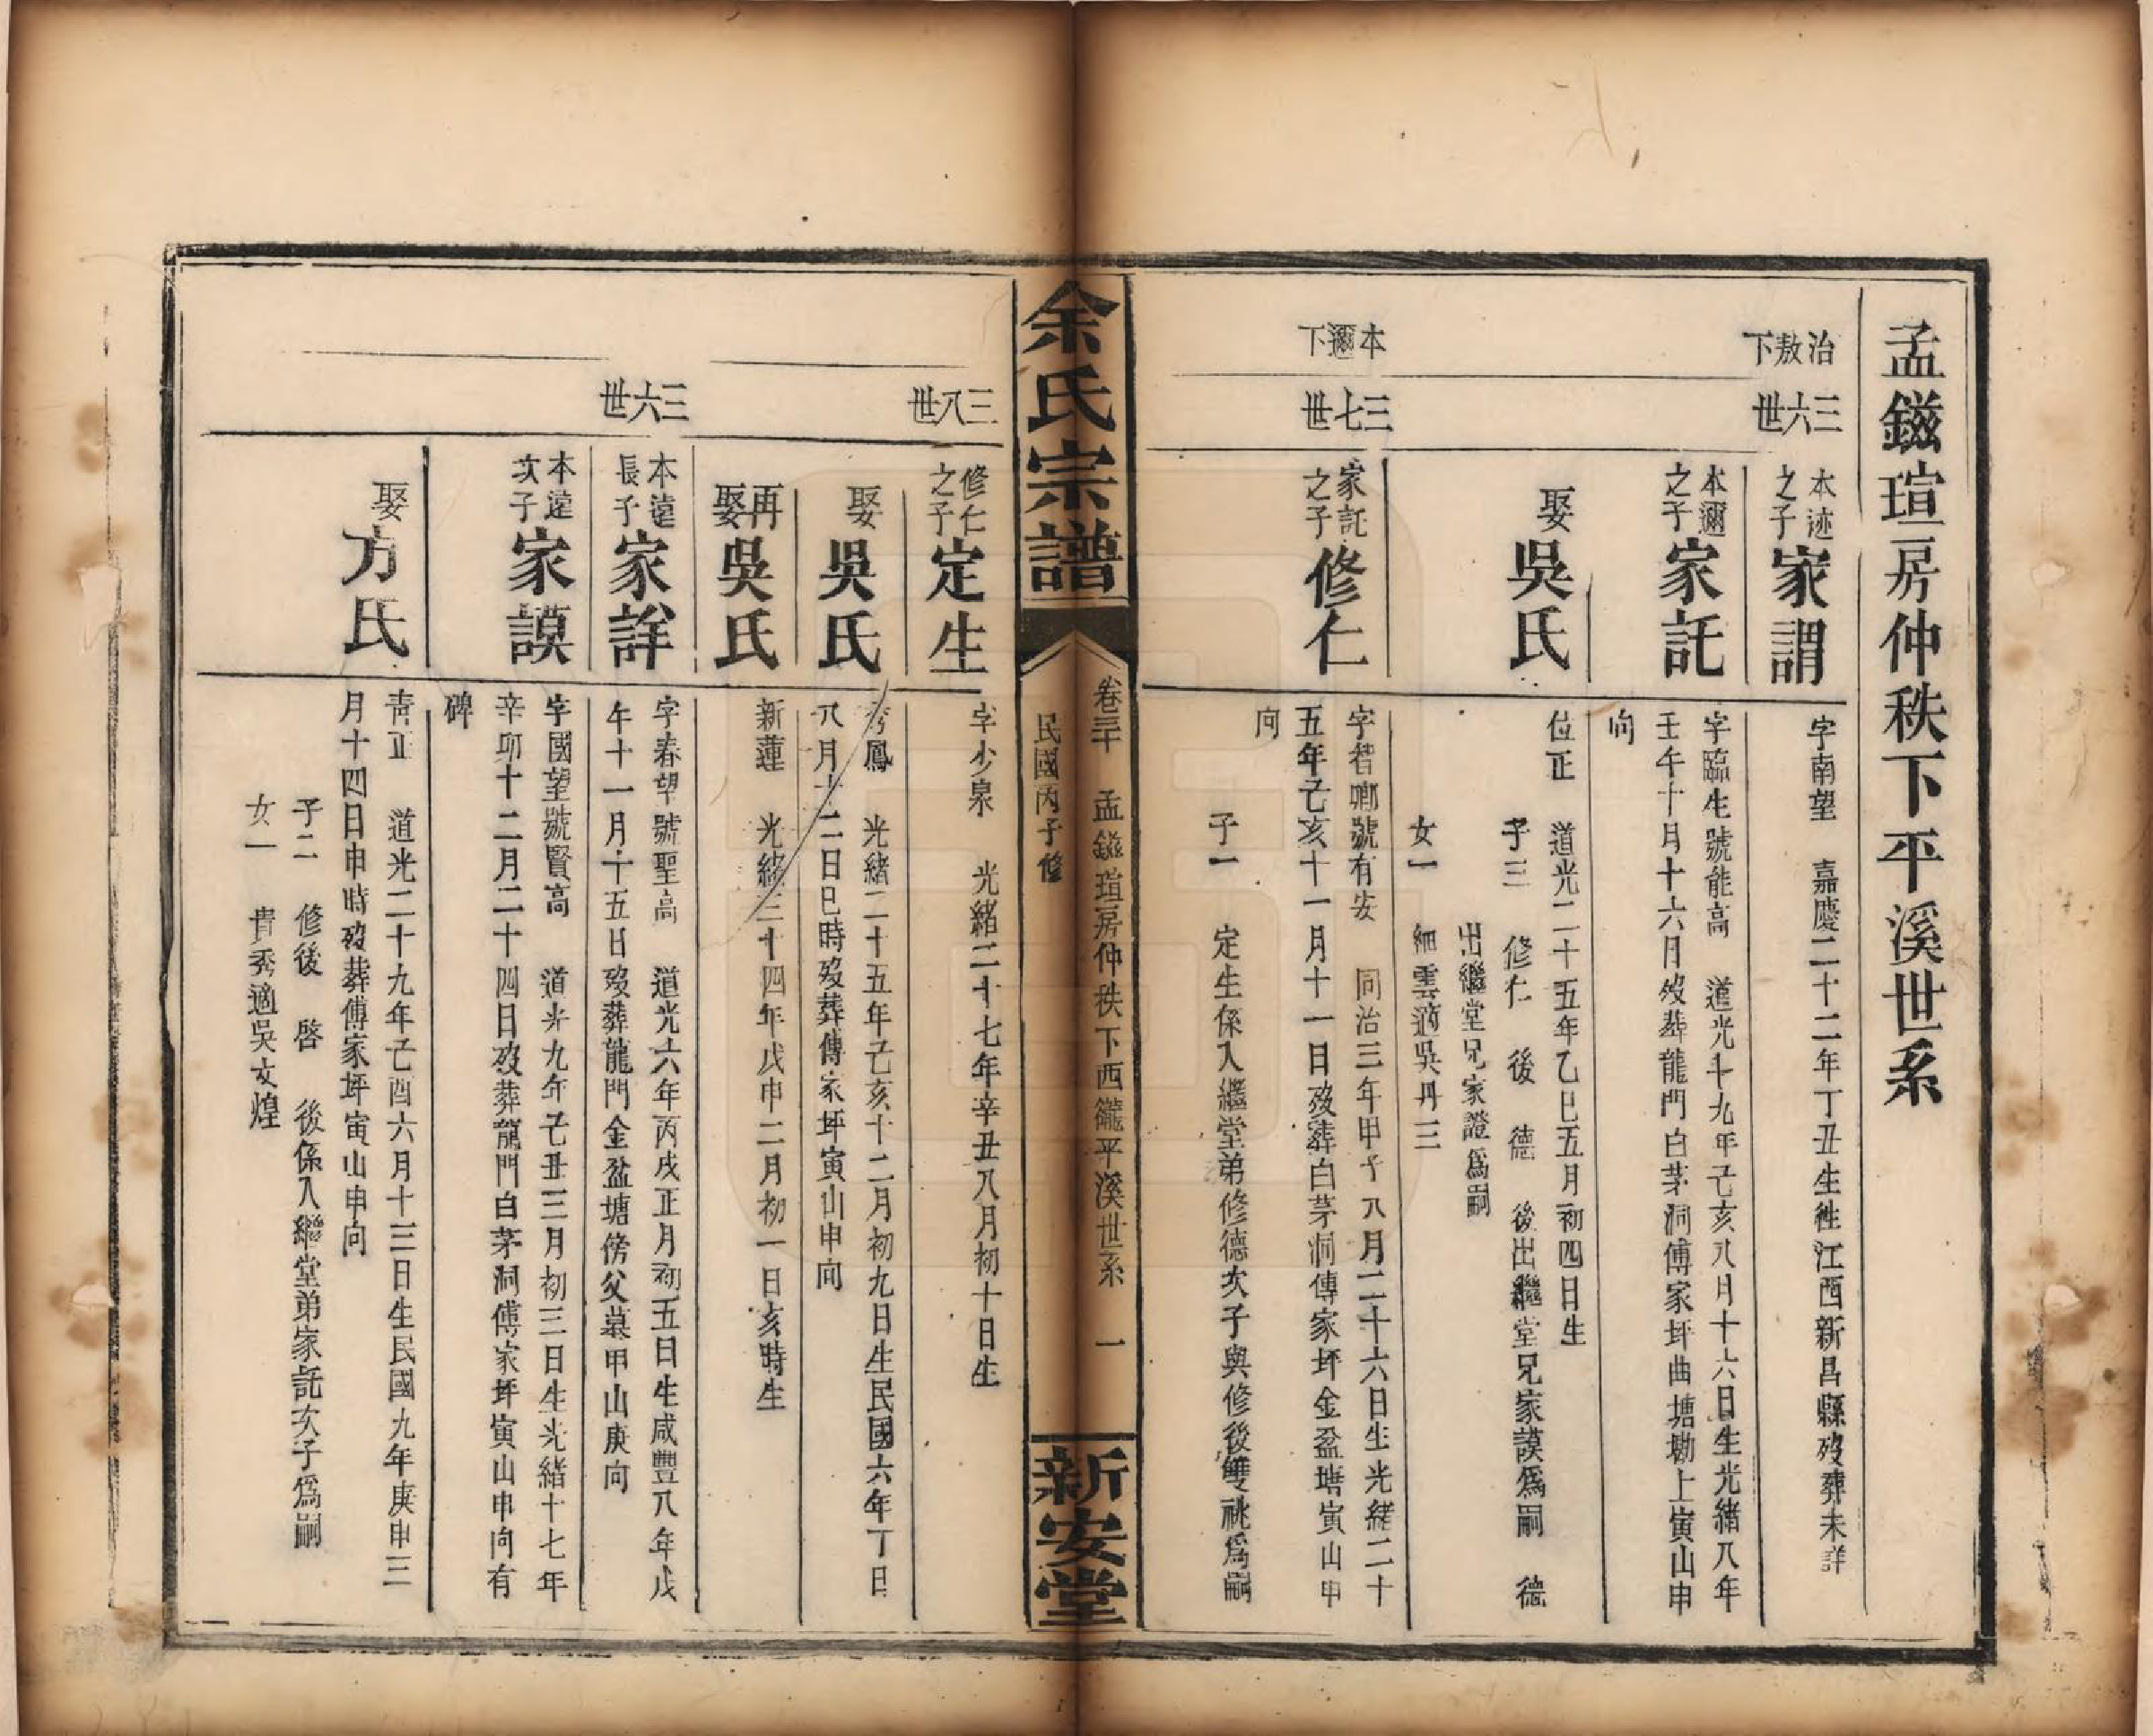 孟鎡瑄房仲秩下平溪世系
治敖下
三六世
本迹之子家謂
字南望 嘉慶二十二年丁丑生徃江西新昌縣歿葬未詳
本邇之子家託
字臨生號能高 道光十九年己亥八月十六日生光緒八年
壬午十月十六月歿葬龍門白茅洞傅家坪曲塘塝上寅山申
向
娶吳氏
位正 道光二十五年乙巳五月初四日生
子三 修仁 後 德 後出繼堂兄家謨爲嗣 德
出繼堂兄家證爲嗣
女一 細雲適吳丹三
本邇下
三七世
家託之子修仁
字智卿號有安 同治三年甲子八月二十六日生光緒二十
五年己亥十一月十一日歿葬白茅洞傅家坪金盆塘寅山申
向
子一 定生係入繼堂弟修德次子與修後雙祧爲嗣
余氏宗譜
卷三十 孟鎡瑄房仲秩下西衖平溪世系 一
民國丙子修
新安堂
三八世
修仁之子定生
字少泉 光緒二十七年辛丑八月初十日生
娶吳氏
秀鳳 光緒二十五年己亥十二月初九日生民國六年丁巳
八月十二日巳時歿葬傅家坪寅山申向
再娶吳氏
新蓮 光緒三十四年戊申二月初一日亥時生
三六世
本遠長子家詳
字春望號聖高 道光六年丙戌正月初五日生咸豐八年戊
午十一月十五日歿葬龍門金盆塘傍父墓甲山庚向
本遠次子家謨
字國望號賢高 道光九年己丑三月初三日生光緒十七年
辛卯十二月二十四日歿葬龍門白茅洞傅家坪寅山申向有
碑
娶方氏
青正 道光二十九年己酉六月十三日生民國九年庚申三
月十四日申時歿葬傅家坪寅山申向
子二 修後 啓 後係入繼堂弟家託次子爲嗣
女一 貴秀適吳文煌